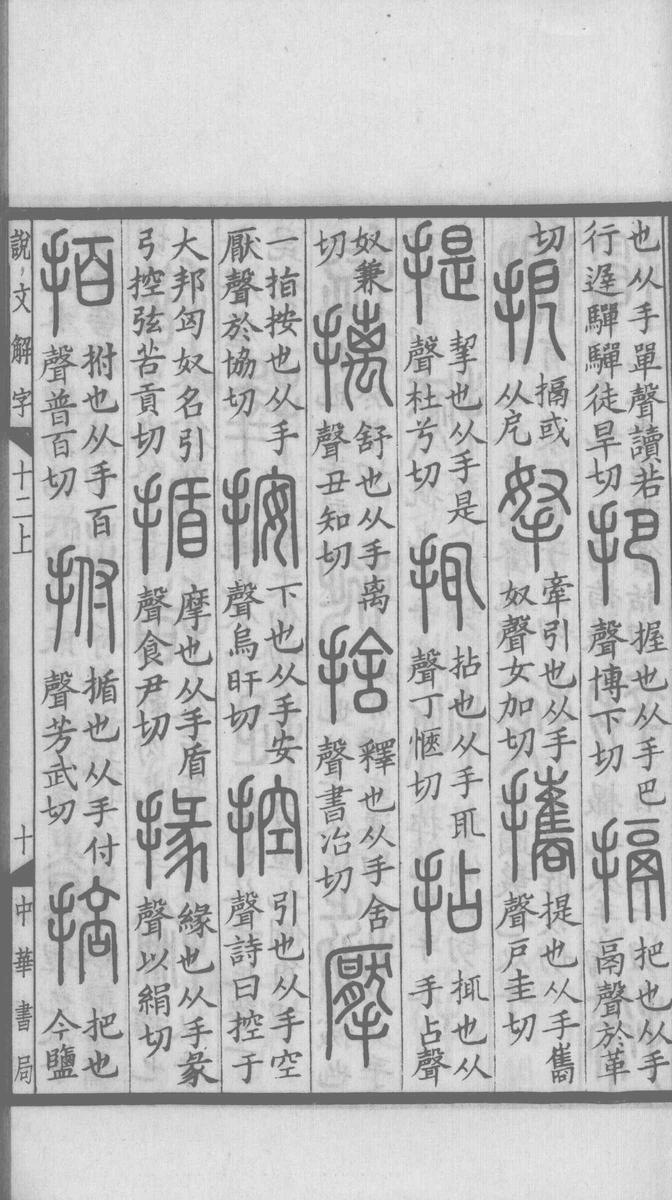 也从手單聲讀若
行遟驒驒徒旱切
把
握也从手巴
聲博下切
搹
把也从手
鬲聲於革
切
𢪸
搹或
从戹
㧱
牽引也从手
奴聲女加切
攜
提也从手巂
聲戶圭切
提
挈也从手是
聲杜兮切
㧗
拈也从手耴
聲丁愜切
拈
㧗也从
手占聲
奴兼
切
摛
舒也从手离
聲丑知切
捨
釋也从手舍
聲書冶切
擪
一指按也从手
厭聲於協切
按
下也从手安
聲烏旰切
控
引也从手空
聲詩曰控于
大邦匈奴名引
弓控弦苦貢切
揗
摩也从手盾
聲食尹切
掾
緣也从手彖
聲以絹切
㧣
拊也从手百
聲普百切
拊
揗也从手付
聲芳武切
掊
把也
今鹽
說文解字
十二上
十
中華書局